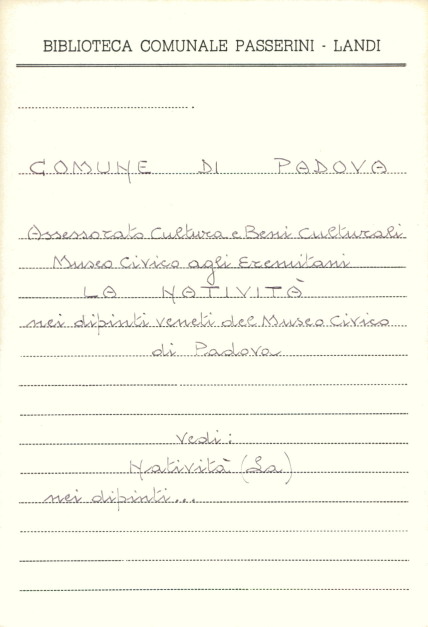 BIBLIOTECA COMUNALE PASSERINI - LANDI
COMUNE DI PADOVA
Assessorato Cultura e Beni Culturali
Museo Civico agli Eremitani
LA NATIVITÀ
nei dipinti veneti del Museo Civico
di Padova
Vedi:
Natività (La)
nei dipinti...